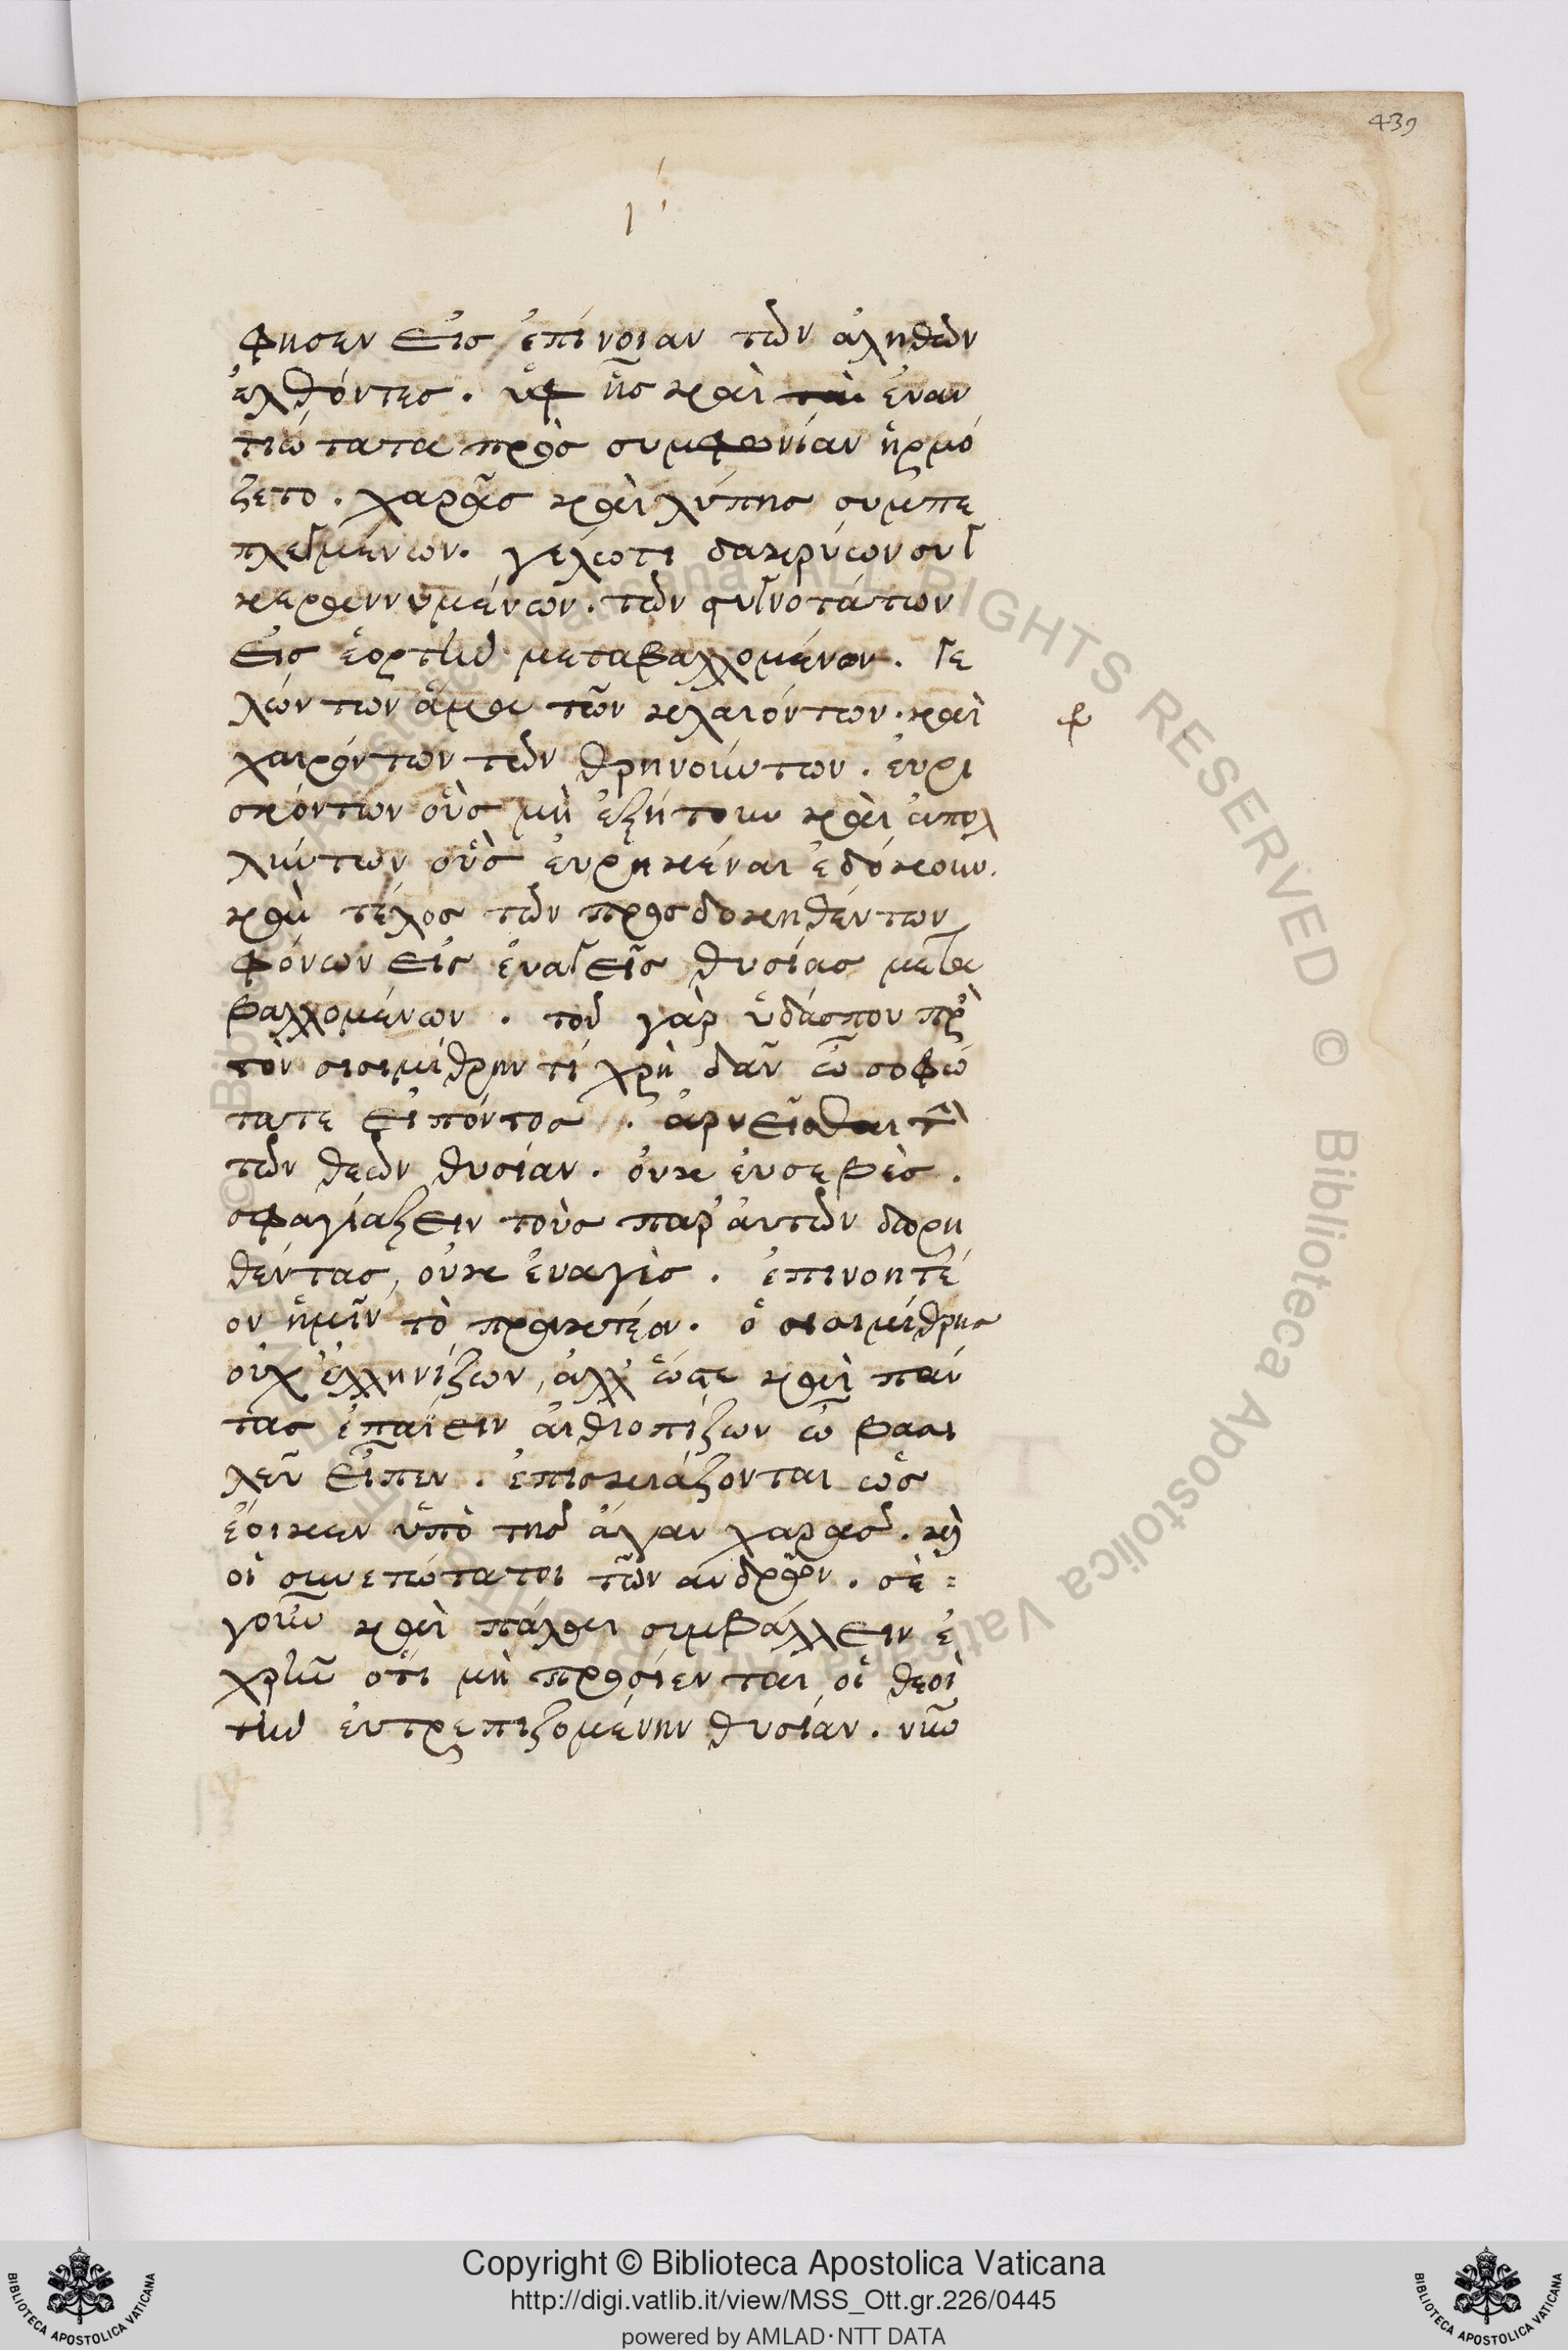 439
ι΄
φησεν εἰς ἐπίνοιαν τῶν ἀληθῶν
ἐλθόντες. ὑφ ἧς καὶ τὰ ἐναν
τιώτατα πρὸς συμφωνίαν ἡρμό
ζετο. χαρᾶς καὶ λύπης συμπε
πλεγμένων. γέλωτι δακρύων συγ
κεραννυμένων. τῶν στυγνοτάτων
εἰς ἑορτὴν μεταβαλλομένων. γε
λώντων ἅμα τῶν κλαιόντων. καὶ
χαιρόντων τῶν θρηνούντων. εὑρι
σκόντων οὓς μὴ ἐζήτουν καὶ ἀπολ
λύντων οὓς εὑρηκέναι ἐδόκουν.
καὶ τέλος τῶν προσδοκηθέντων
φόνων εἰς ἐναγεῖς θυσίας μετα
βαλλομένων. τοῦ γὰρ ὑδάσπου πρὸ
τὸν σισιμίθρην τί χρὴ δρᾶν ὦ σοφώ
τατε εἰπόντος. ἀρνεῖσθαι τὴν
τῶν θεῶν θυσίαν. οὐκ εὐσεβές.
σφαγιάζειν τοὺς παρ' αὐτῶν δωρη
θέντας, οὐκ εὐαγὲς. ἐπινοητέ
ον ἡμῖν τὸ πρακτέον. ὁ σισιμίθρης
οὐχ ἑλληνίζων, ἀλλ' ὥστε καὶ πάν
τας ἐπαΐειν αἰθιοπίζων ὦ βασι
λεῦ εἶπεν. ἐπισκιάζονται ὡς
ἔοικεν ὑπὸ τῆς ἄγαν χαρᾶς. καὶ
οἱ συνετώτατοι τῶν ἀνδρῶν. σὲ =
γοῦν καὶ πάλαι συμβάλλειν ἐ
χρῆν ὅτι μὴ προσίενται οἱ θεοὶ
τὴν εὐτρεπιζομένην θυσίαν. νῦν
Copyright © Biblioteca Apostolica Vaticana
http://digi.vatlib.it/view/MSS_Ott.gr.226/0445
powered by AMLAD·NTT DATA